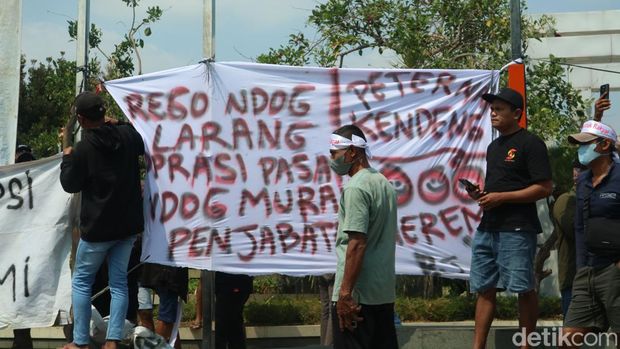 REGO NDOG
LARANG
OPRASI PASA
NDOG MURA
PENJABAT MEREM
PETERN
KENDENG
SI
MI
detikcom